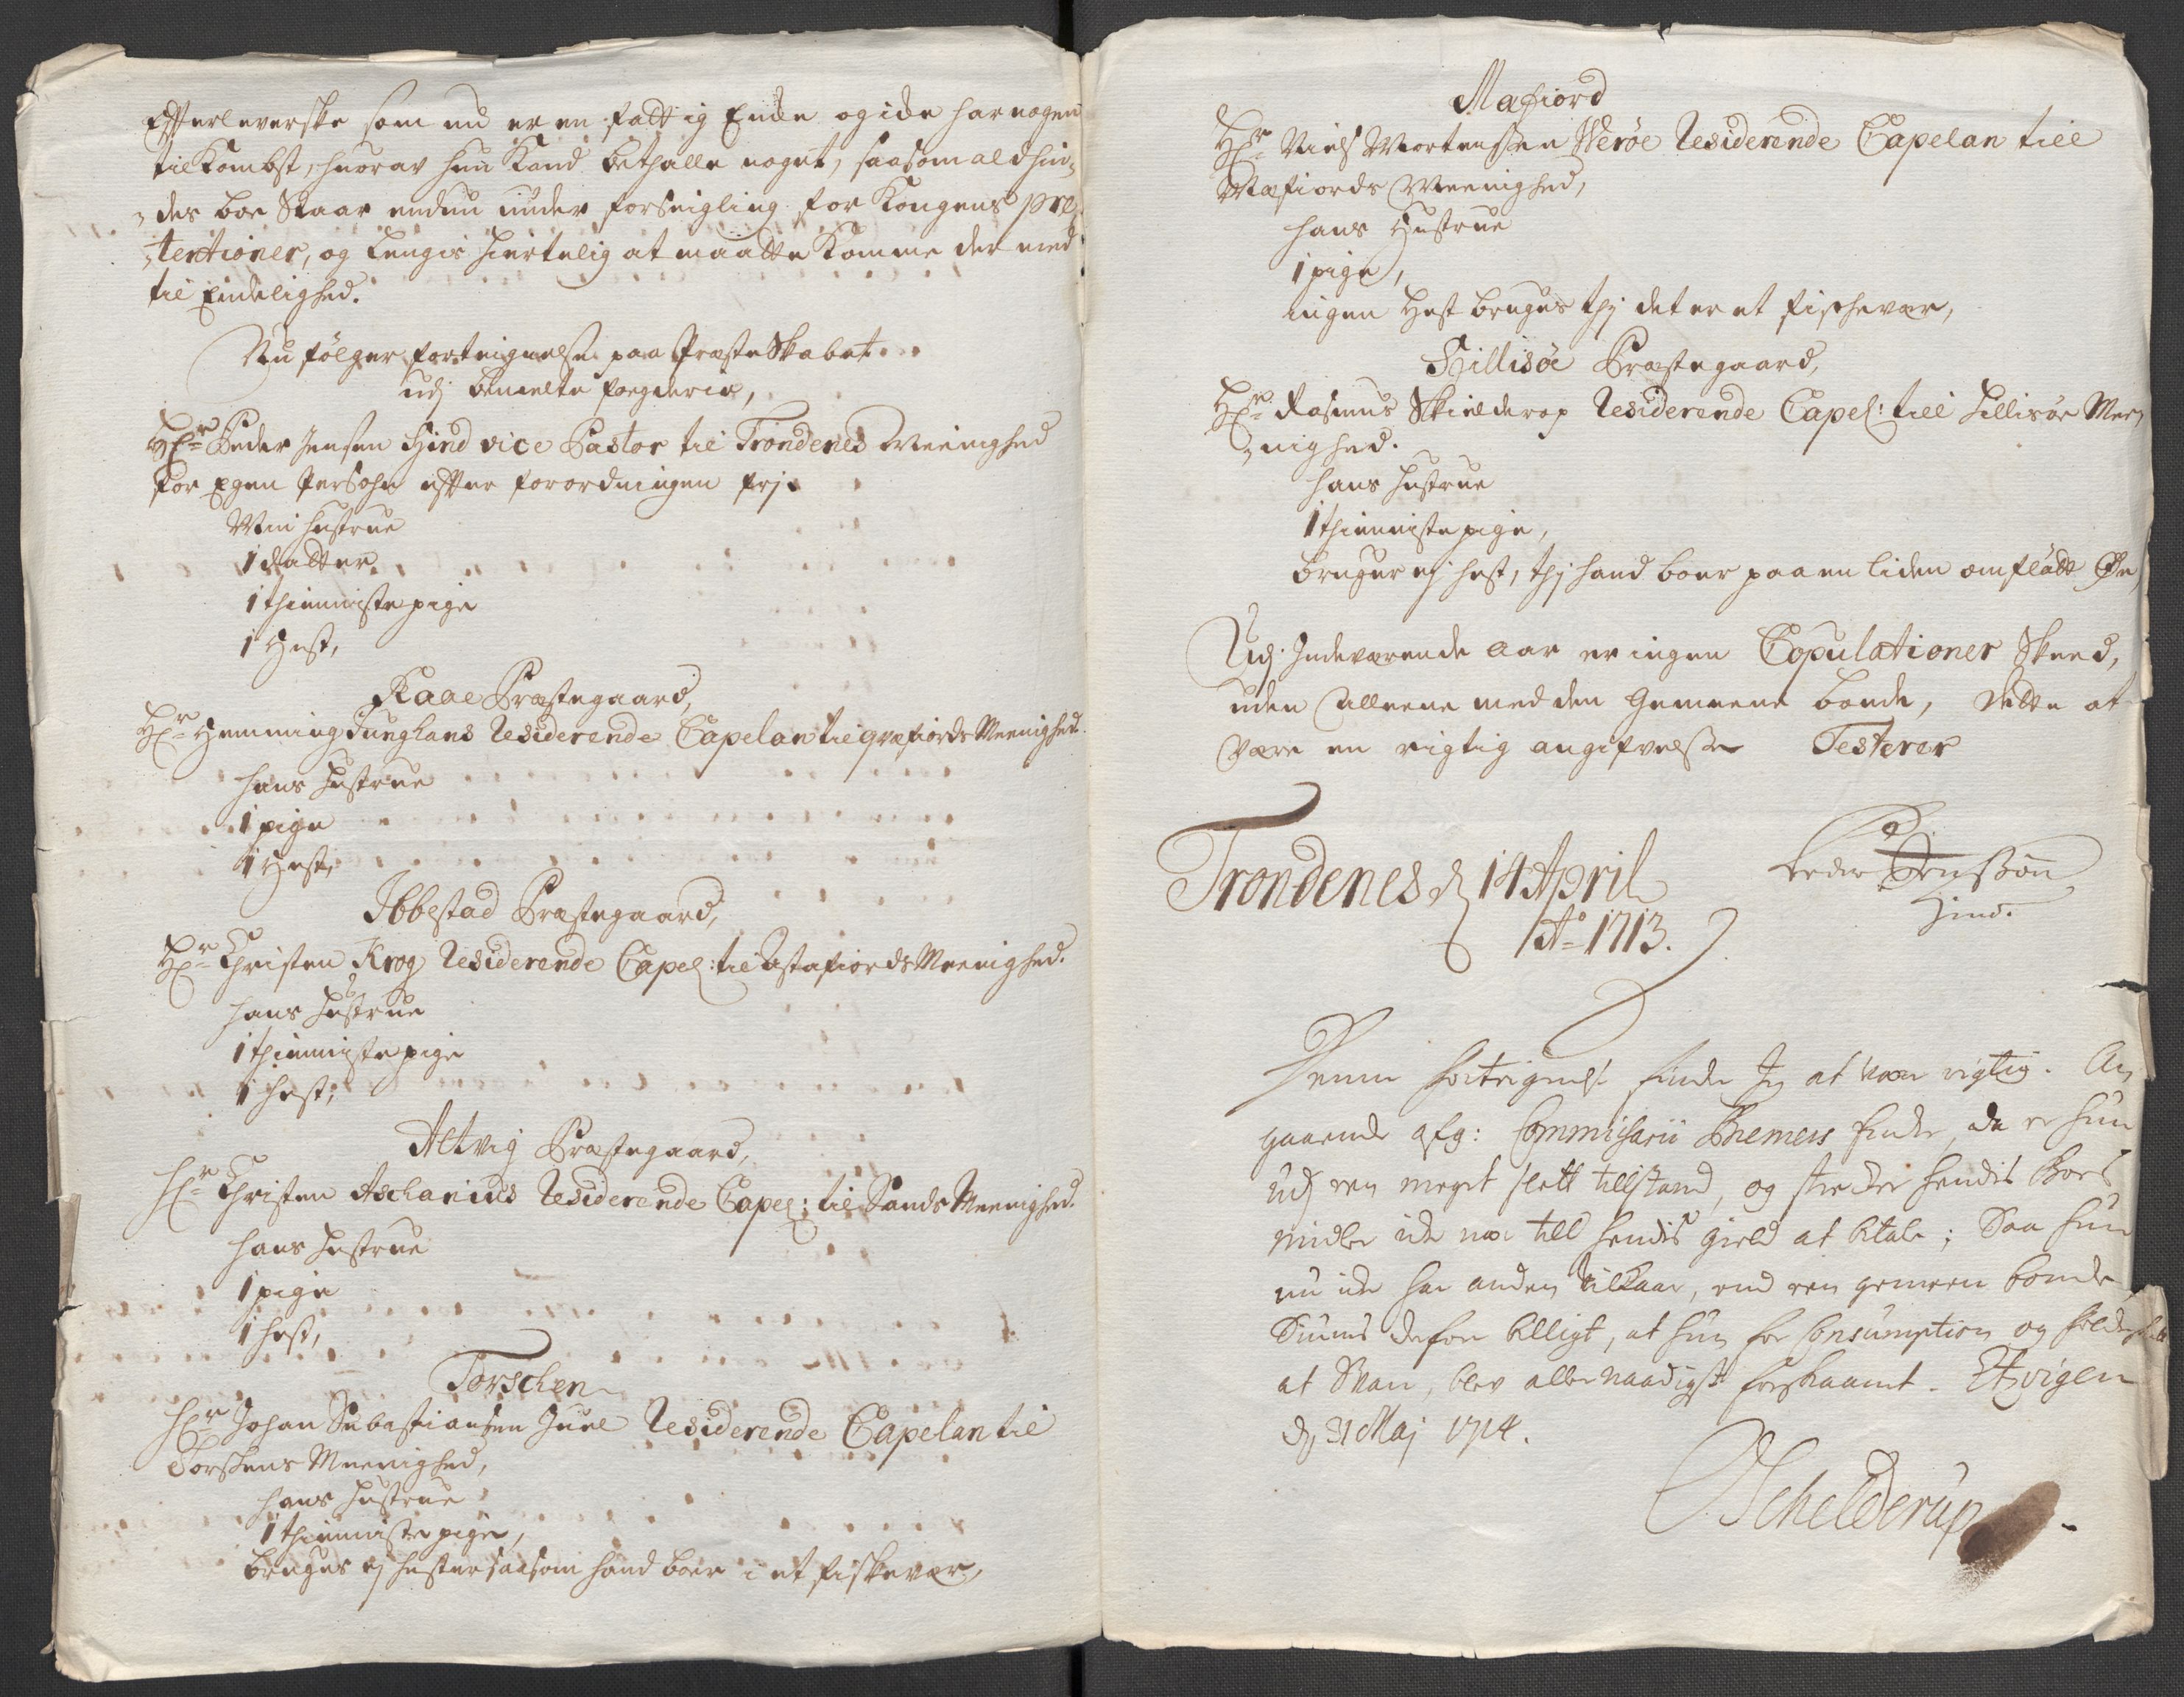 Effterleverske som nu er en fattig Encke og icke har nogen
tilkombst, huorav hun kand bethalle noget, saasom ald hin„
„des boe staar endnu under forseigling for Kongens præ„
„tentioner, og lengis hiertelig at maatte komme der med
til Endelighed.
Nu følger forteignelse paa Præsteskabet
udj bemelte fogderie,
Hr Peder Jensen Hind vice Pastor til Trondenes Meenighed
for Egen Persohn effter forordningen frj.
Min hustrue
1 datter
1 thienniste pige
1 Hest,
Kaae Præstegaard,
Hr Hemming Junghans Residerende Capelan til Qvæfiords Meenighed.
hans Hustrue
1 pige
1 Hest,
Ibbestad Præstegaard,
Hr Christen Krog Residerende Capel: til Astafiords Meenighed.
hans Hustrue
1 thienniste pige
1 hest;
Altvig Præstegaard,
Hr Christen Aschanius Residerende Capel: til Sands Meenighed.
hans Hustrue
1 pige
1 hest,
Torschen
Hr Johan Sebastiansen Juel Residerende Capelan til
Torskens Meenighed,
hans Hustrue
1 thienniste pige,
bruges ej hester saasom hand boer i et fiskevær,
Mafiord
Hr Niels Mortensen Werøe Residerende Capelan till
Mæfiords Meenighed,
hans Hustrue
1 pige,
ingen Hest bruges thj det er et fischevær,
Hillisøe Præstegaard,
Hr Rasmus Skielderop Residerende Capel: till Hillisøe Mee„
„nighed.
hans Hustrue
1 thienniste pige,
bruger ej hest, thj hand boer paa en liden omflødt Øe
Udj Indeværende aar er ingen Copulationer skeed,
uden allene med den gemeene bonde, dette at
være en rigtig angifvelse Testerer
Trondenes d 14 April
Ao 1713.
Peder Jenssøn
Hind.
Denne forteignelse finder Jeg at være rigtig. An
gaaende afg: Commissarii Bremers Encke, da er hun
udj een meget slett tillstand, og strecker hendis Boes
midler icke nær till hendis gield at betale; Saa hun
nu icke har anden Vilkaar, end een gemeen bonde
Siunes derfor billigt, at hun for Consumption og folcke skatt
at svare, blev allernaadigst forskaanet. Elvigen
d 31 Maj 1714.
Schelderup